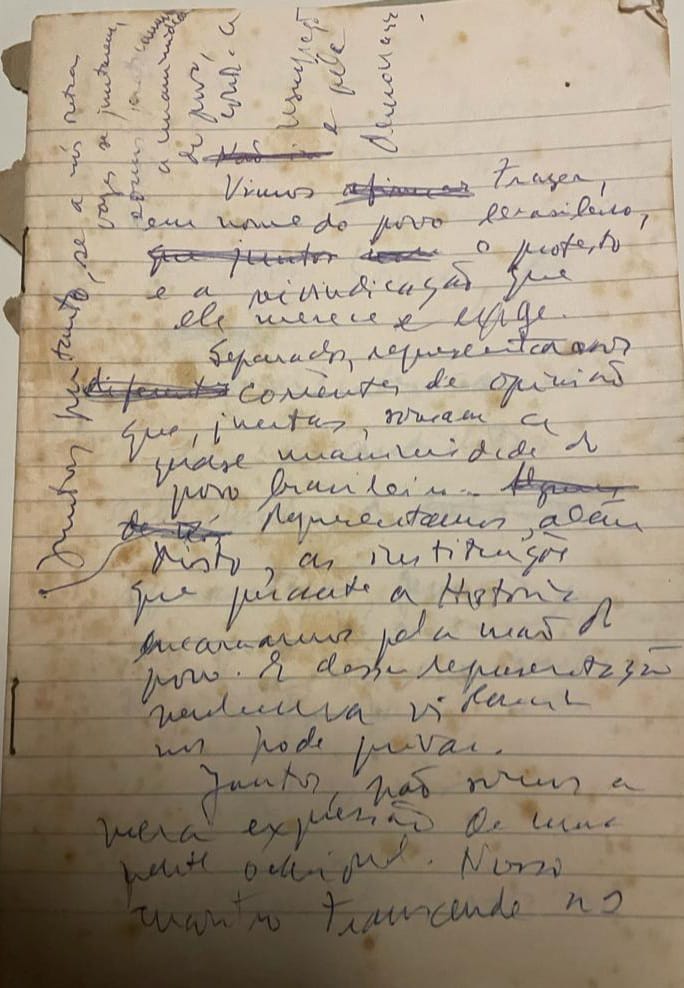 Vimos trazer,
em nome do povo brasileiro,
que juntos o protesto
e a reivindicação que
ele merece e exige.
Separados, representamos
diferentes correntes de opinião
que, juntas, somam a
quase unanimidade do
povo brasileiro.
Representamos, além
disto, as instituições
que perante a História
encarnamos pela mão do
povo. E dessa representação
nenhuma violência
nos pode privar.
Juntos, não somos a
mera expressão de uma
frente ocasional. Nosso
encontro transcende os
Juntos, portanto, se a nós outras
vozes se juntarem,
somos
a unanimidade
do povo,
contra a
usurpação
e pela
Democracia.